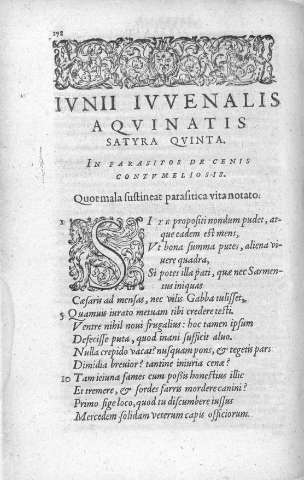 178
IVNII IVVENALIS
AQVINATIS
SATYRA QVINTA.
IN PARASITOS DE CENIS
CONTVMELIOSIS.
Quot mala sustineat parasitica vita notato.
1 SI te propositi nondum pudet, at-
que eadem est mens,
Vt bona summa putes, aliena vi-
uere quadra,
Si potes illa pati, quæ nec Sarmen-
tus iniquas
Cæsaris ad mensas, nec vilis Gabba tulisset,
5 Quamuis iurato metuam tibi credere testi.
Ventre nihil noui frugalius: hoc tamen ipsum
Defecisse puta, quod inani sufficit aluo.
Nulla crepido vacat? nusquam pons, & tegetis pars
Dimidia breuior? tantine iniuria cenæ?
10 Tam ieiuna fames cum possis honestius illic
Et tremere, & sordes farris mordere canini?
Primo fige loco, quod tu discumbere iussus
Mercedem solidam veterum capis officiorum.